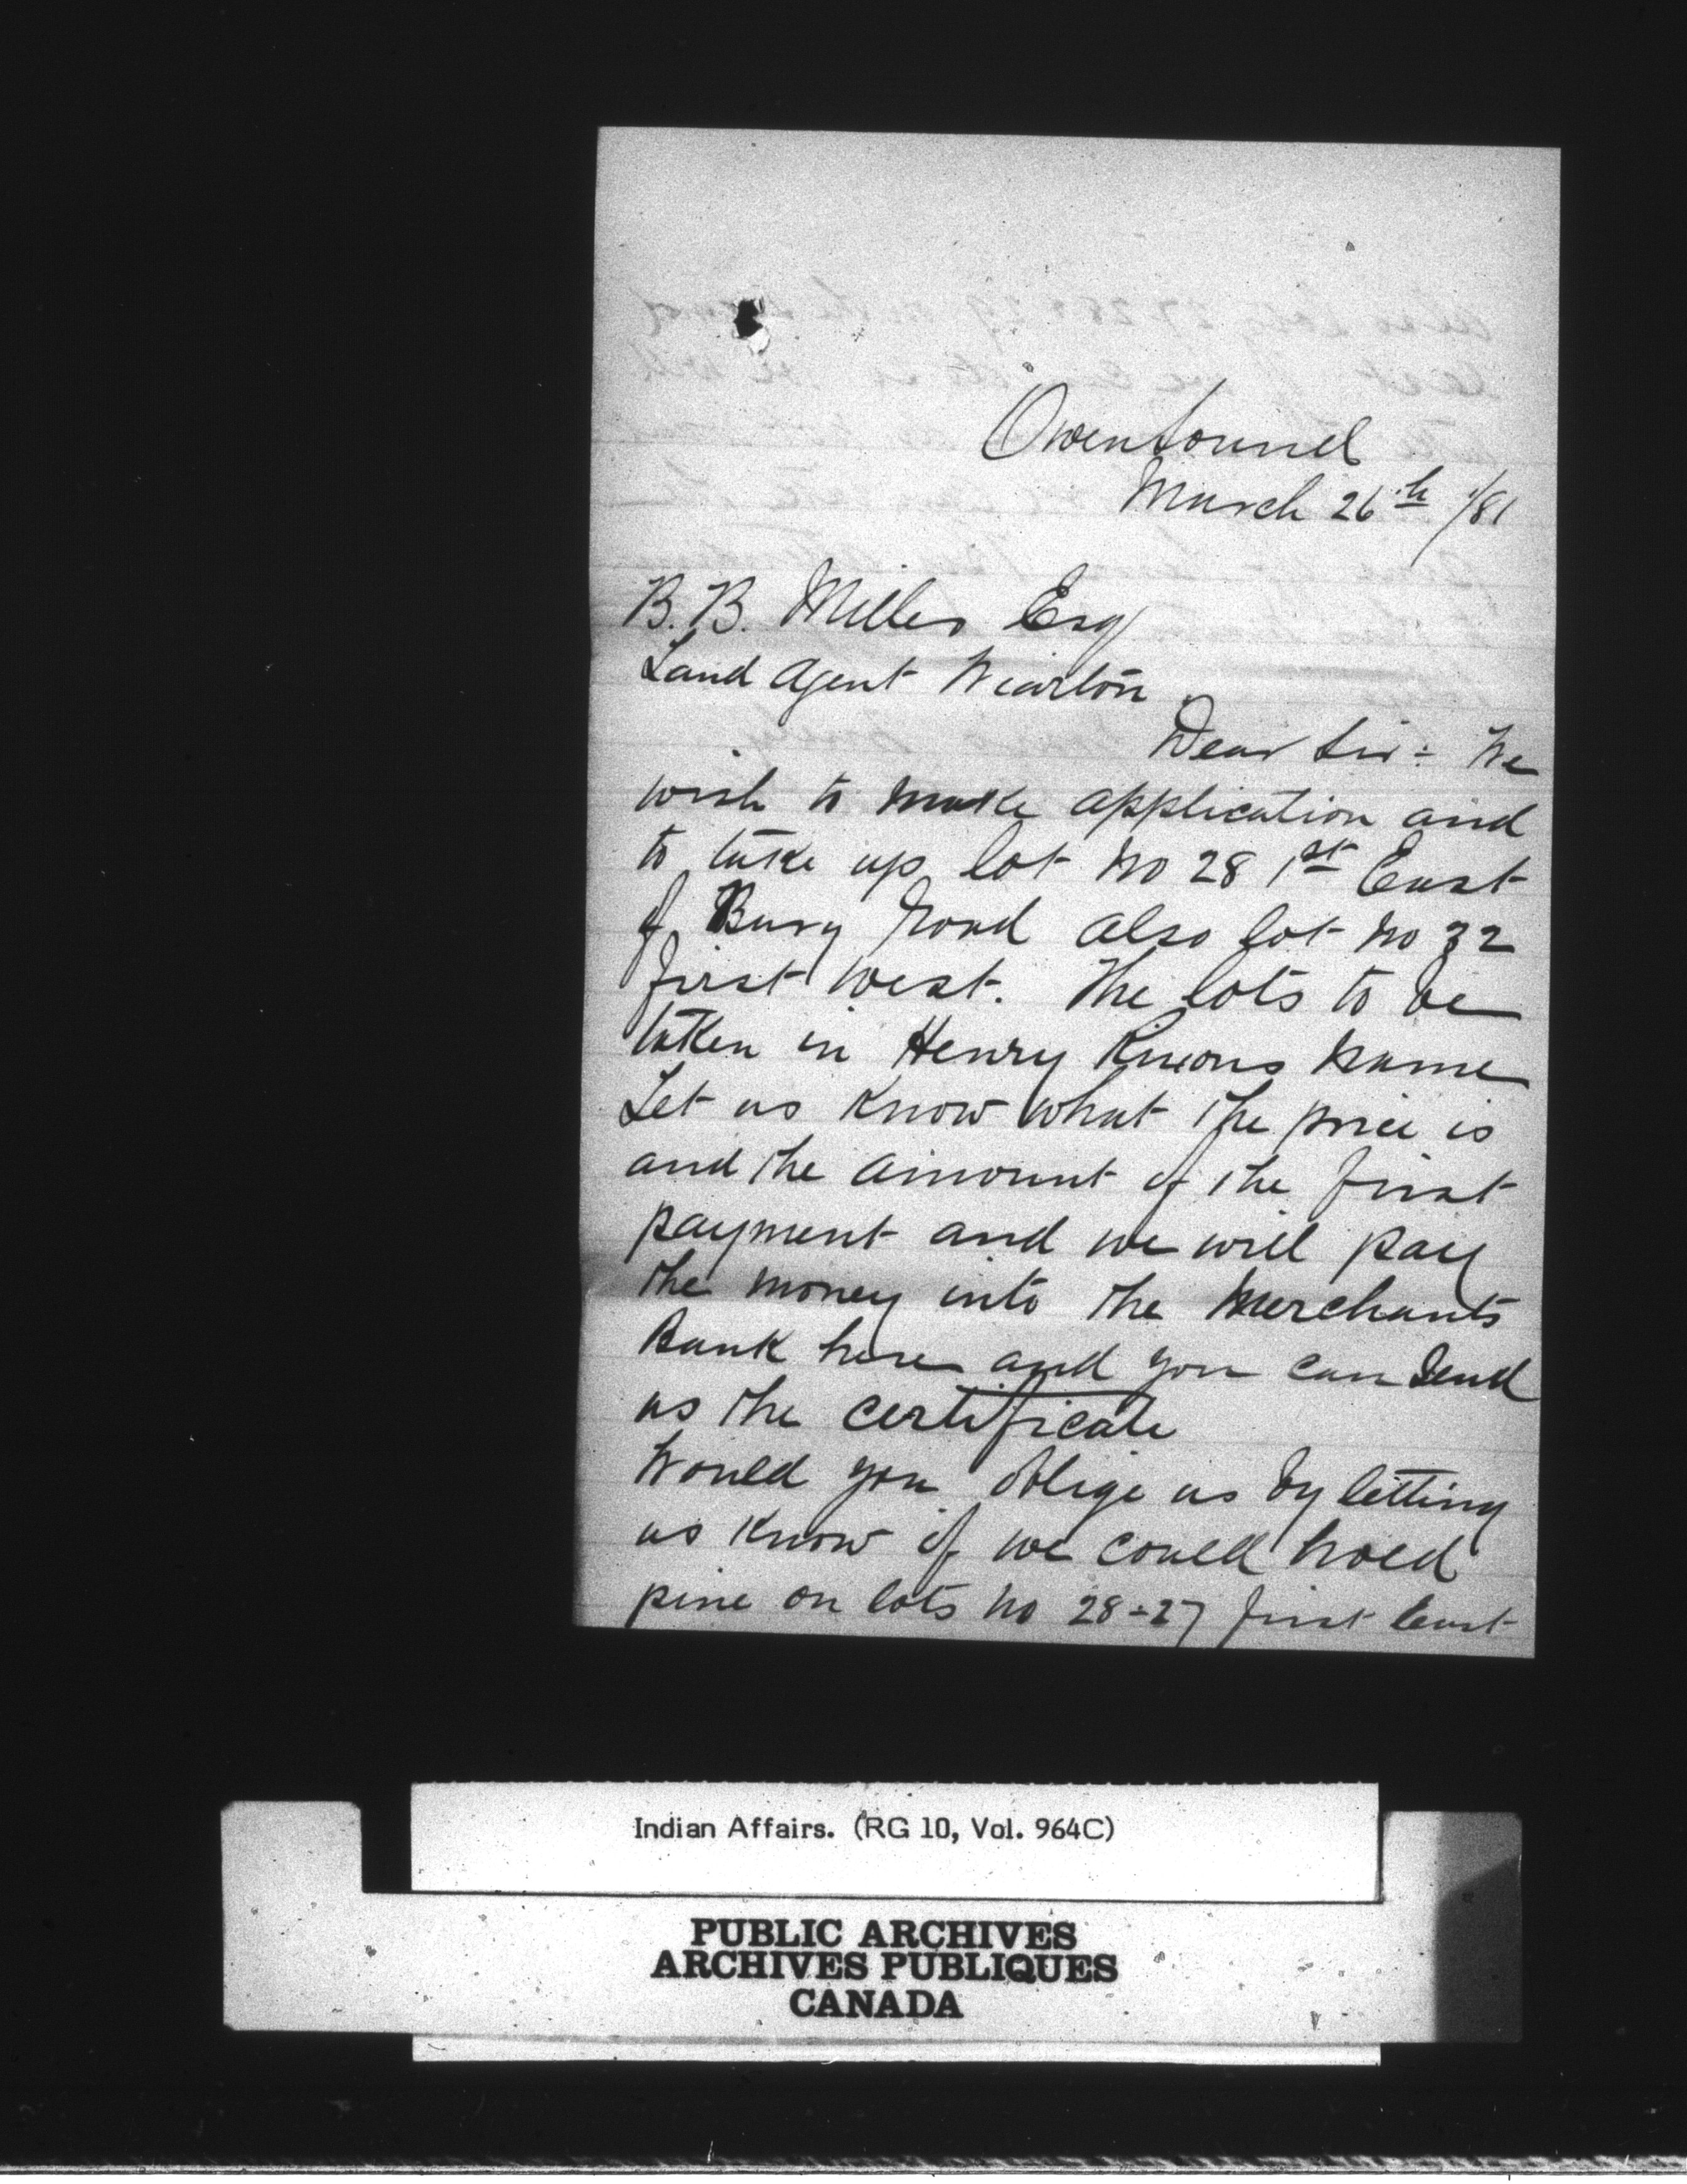 Owen Sound
March 26th /81
B. B. Miller Esq
Land Agent Wiarton
Dear Sir: We
wish to make application and
to take up lot No 28 1st East
of Bury Road also lot No 32
first west. The lots to be
taken in Henry name
Let us Know what the price is
and the amount of the first
payment and we will pay
the money into the Merchants
Bank here and you can send
us the certificate
Would you oblige us by letting
us Know if we could hold
pine on lots No 28-27 first East
Indian Affairs. (RG 10, Vol. 964C)
PUBLIC ARCHIVES
ARCHIVES PUBLIQUES
CANADA